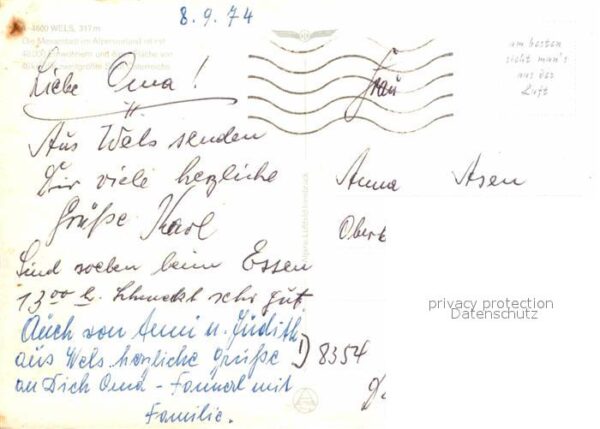 8.9.74
A-4600 WELS, 317m
Die Messestadt im Alpenvorland ist mit
Liebe Oma!
Aus Wels senden
Dir viele herzliche
Grüße Karl
Sind soeben beim Essen
13 00 h. Schmeckt sehr gut.
Auch von Anni u. Judith
aus Wels herzliche Grüße
an Dich Oma - Fannerl mit
Familie.
am besten
sieht man's
aus der
Luft
Frau
Anna Asen
Oberk
privacy protection
Datenschutz
8354